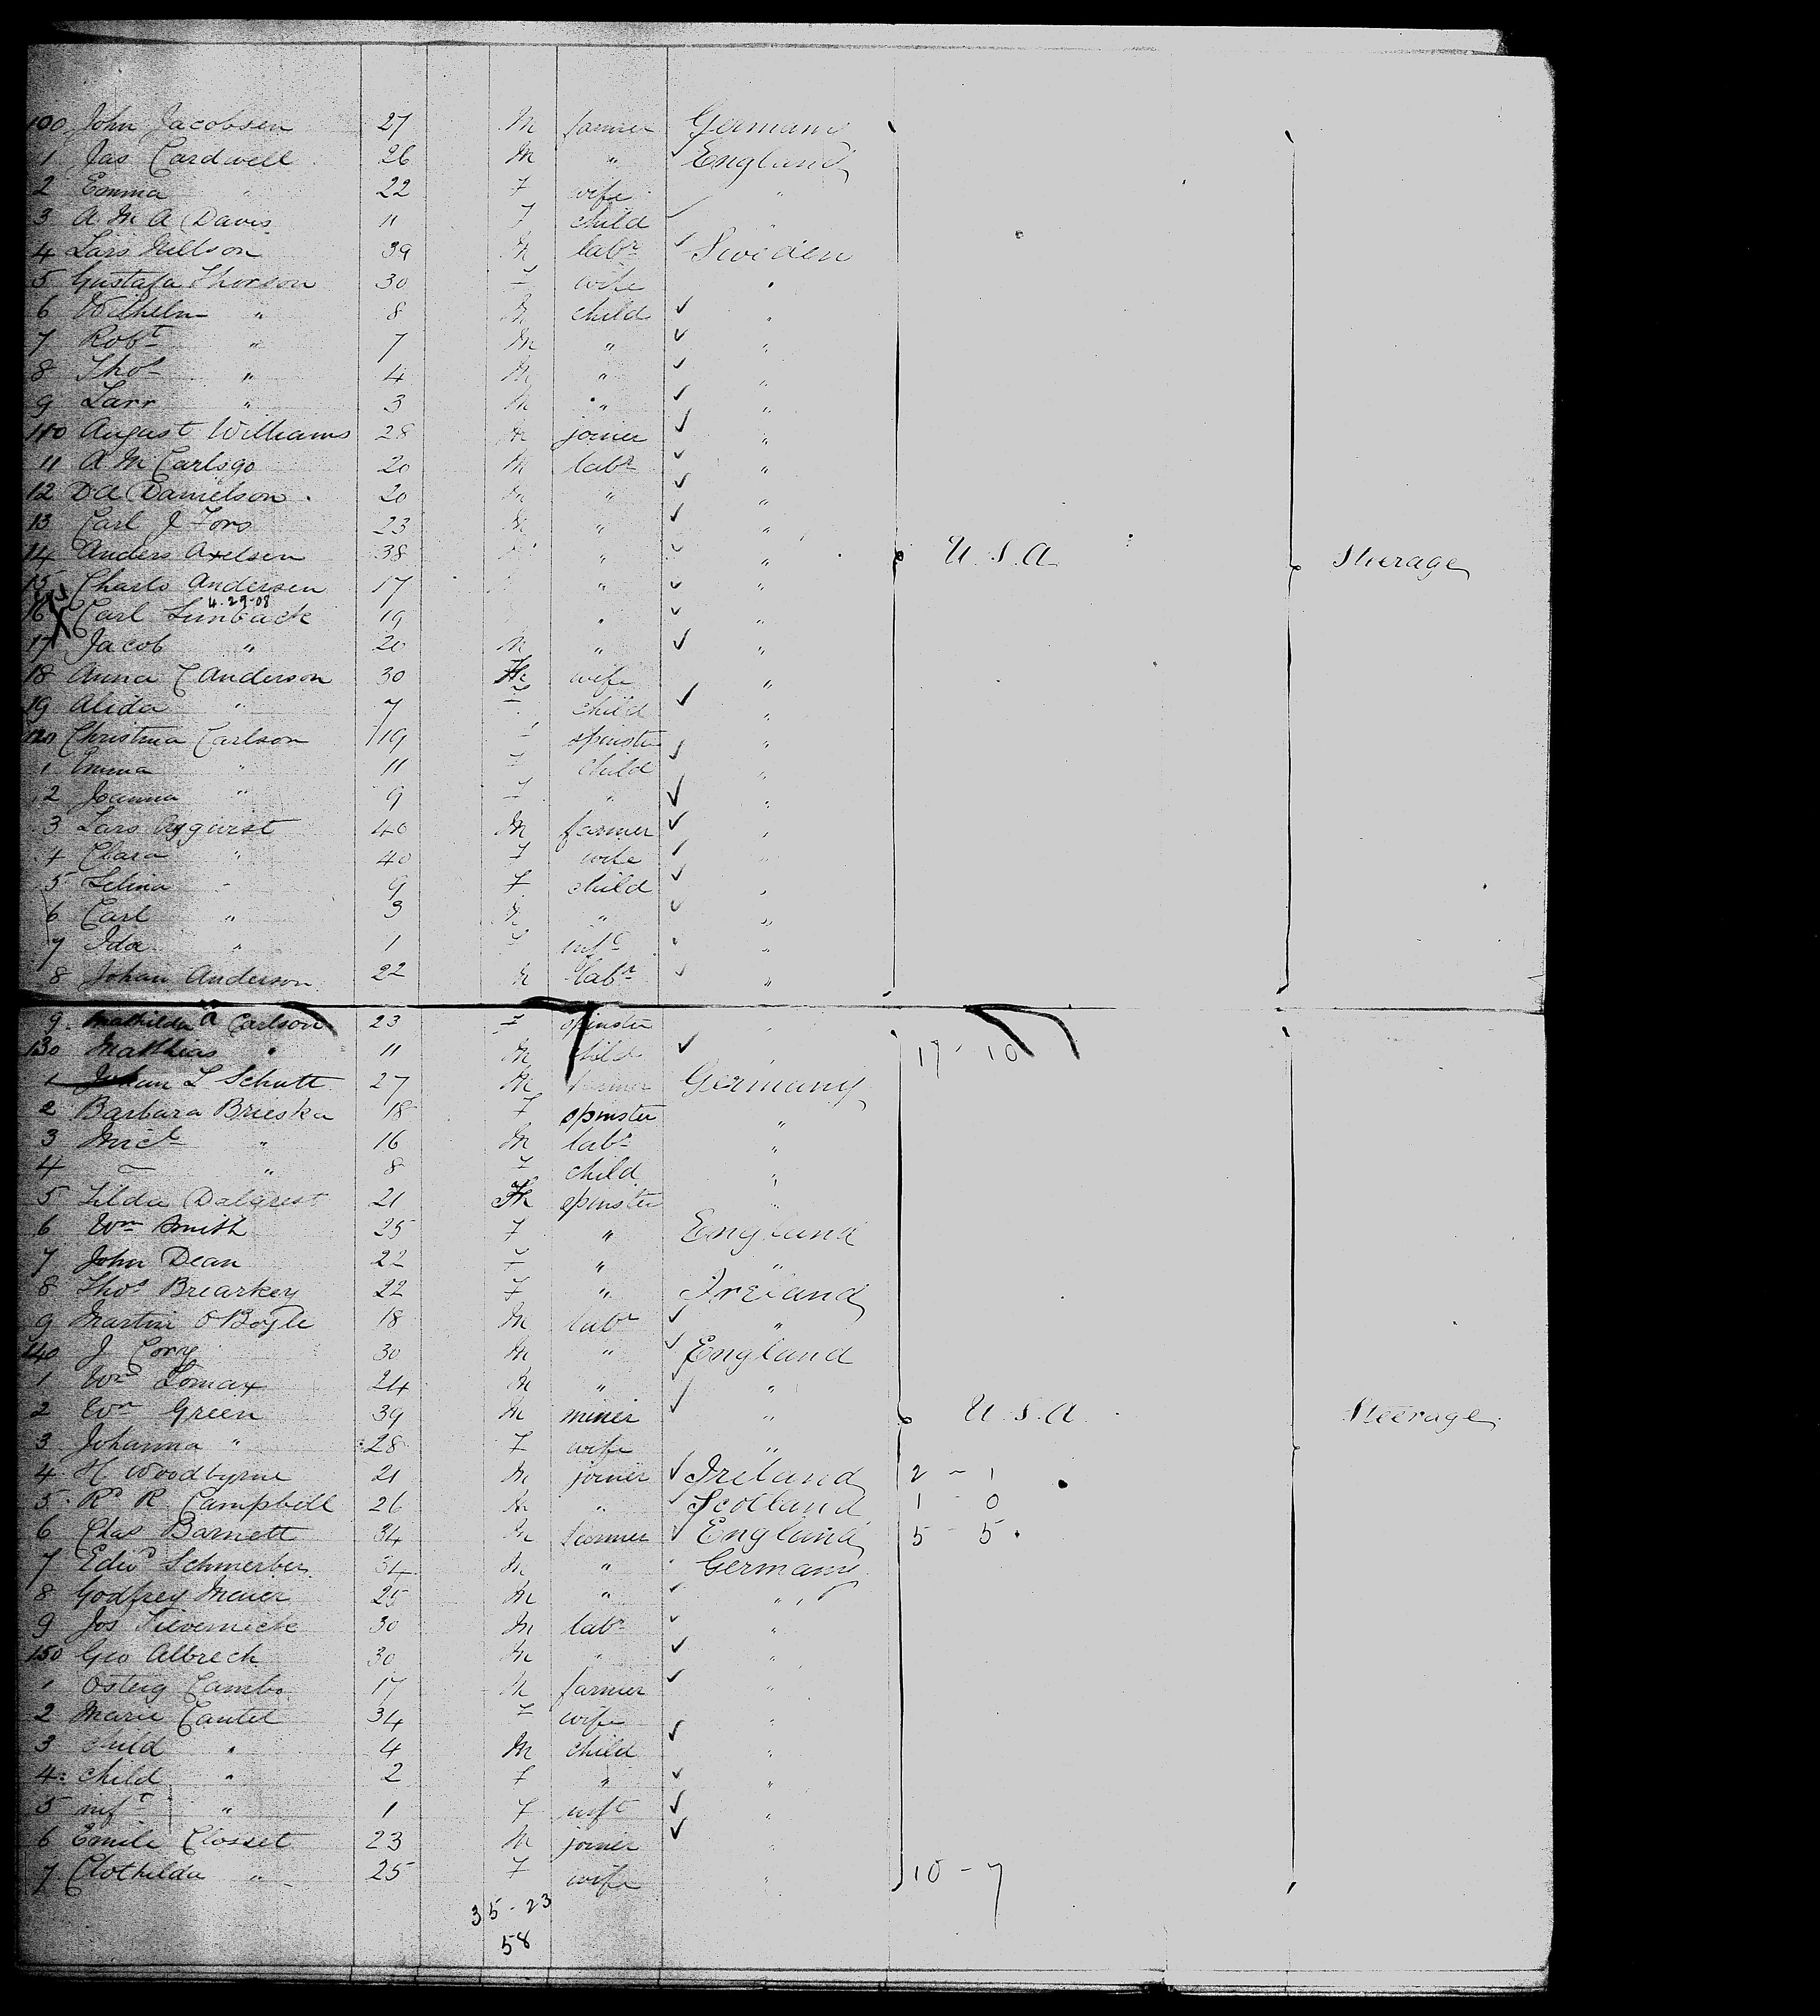 100 John Jacobsen 27 M farmer Germany
1 Jas Cardwell 26 M " England
2 Emma " 22 F wife "
3 A M A Davis 11 F child "
4 Lars Nillson 39 M labr Sweden
5 Gustafa Thorson 30 F wife "
6 Wilhelm " 8 M child "
7 Robt " 7 M " "
8 Thos " 4 M " "
9 Larr " 3 M " "
110 August Williams 28 M joiner "
11 A M Carlsgo 20 M labr "
12 D A Danielson 20 M " "
13 Carl J Fors 23 M " "
14 Anders Axelsen 38 " " U.S.A Steerage
15 Charls Andersen 17 " "
4-29-08
16 Carl Lunback 19 " "
17 Jacob " 20 M " "
18 Anna C Anderson 30 F wife "
19 Alida " 7 F child "
120 Christina Carlson 19 F spinster "
1 Emma " 11 F child "
2 Joanna " 9 F " "
3 Lars 40 M farmer "
4 Clara " 40 F wife "
5 Selina " 9 F child "
6 Carl " 3 M " "
7 Ida " 1 F inft "
8 Johan Anderson 22 M labr "
9 Mathilda A Carlson 23 F spinster "
130 Matthias " 11 M child " 17 - 10
1 L Schutt 27 M farmer Germany
2 Barbara Brieska 18 F spinster "
3 Micl " 16 M labr "
4 — " 8 F child "
5 Lilda Dalgrest 21 F spinster "
6 Wm Smith 25 F " England
7 John Dean 22 F " "
8 Thos Brearkey 22 F " Ireland
9 Martin O Boyle 18 M labr "
140 J Cory 30 M " England
1 Wm Lomax 24 M " "
2 Wm Green 39 M miner " U.S.A Steerage
3 Johanna " 28 F wife "
4 H Woodbyrne 21 M joiner Ireland 2 - 1
5 Rd R Campbell 26 M " Scotland 1 - 0
6 Chas Barnett 34 M farmer England 5 - 5
7 Edwd Schmerber 34 M " Germany
8 Godfrey Meier 25 M " "
9 Jos 30 M labr "
150 Geo Albrech 30 M " "
1 Osteig Cambo 17 M farmer "
2 Marie Cautel 34 F wife "
3 child " 4 M child "
4 child " 2 F " "
5 inft " 1 F inft "
6 Emile Closset 23 M joiner "
7 Clothilda " 25 F wife " 10 - 7
35 - 23
58